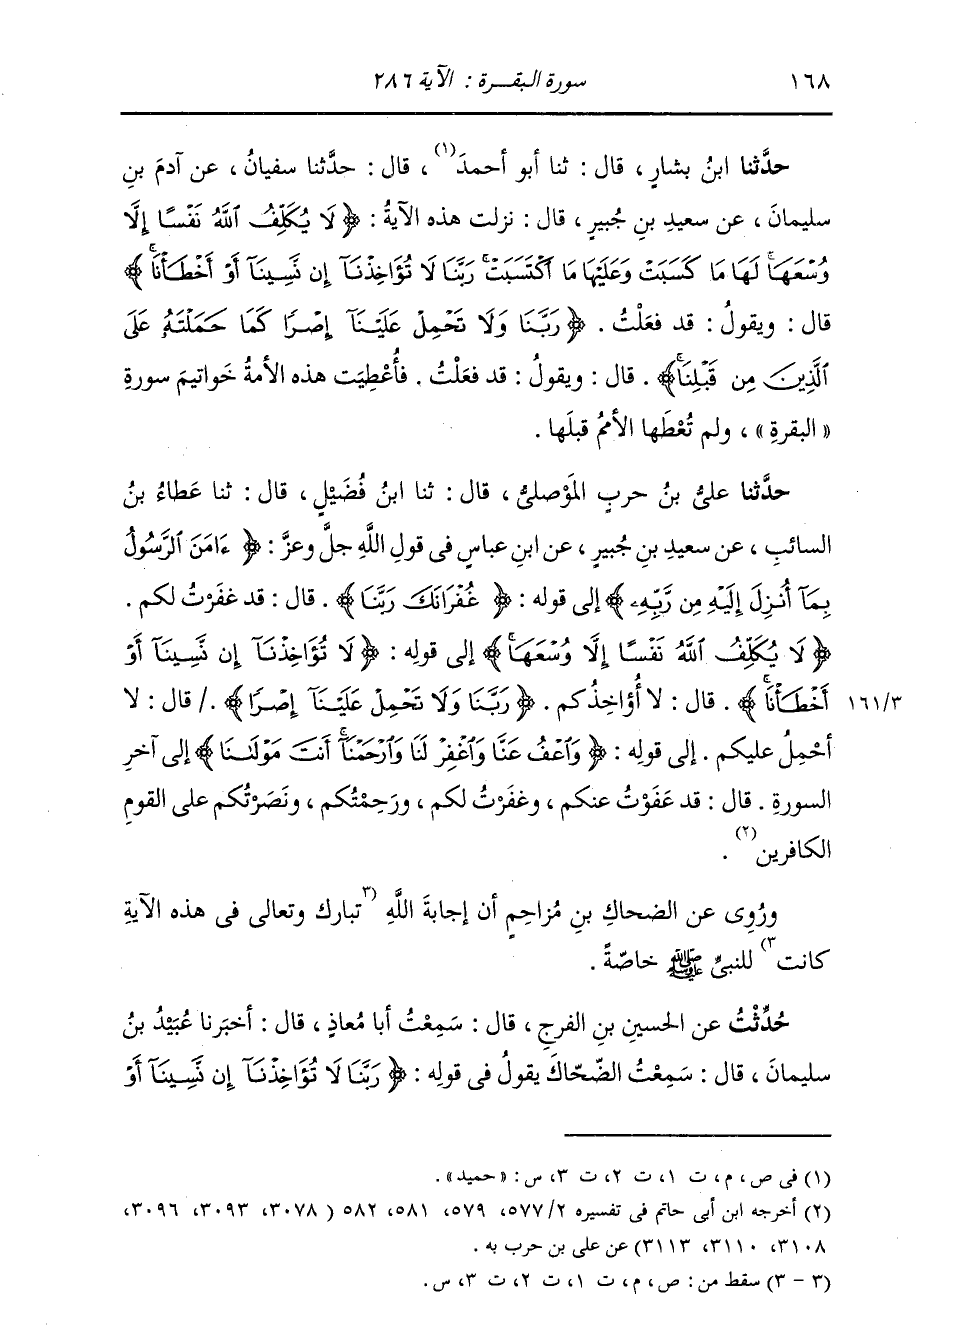 ١٦٨ سورة البقـــرة : الآية ٢٨٦
حدَّثنا ابنُ بشارٍ ، قال : ثنا أبو أحمدَ(١) ، قال : حدَّثنا سفيانُ ، عن آدمَ بنِ
سليمانَ ، عن سعيدِ بنِ جُبيرٍ ، قال : نزلت هذه الآيةُ : ﴿ لَا يُكَلِّفُ ٱللَّهُ نَفْسًا إِلَّا
وُسْعَهَاۚ لَهَا مَا كَسَبَتْ وَعَلَيْهَا مَا ٱكْتَسَبَتْۗ رَبَّنَا لَا تُؤَاخِذْنَآ إِن نَّسِينَآ أَوْ أَخْطَأْنَاۚ ﴾
قال : ويقولُ : قد فعَلْتُ . ﴿ رَبَّنَا وَلَا تَحْمِلْ عَلَيْنَآ إِصْرًا كَمَا حَمَلْتَهُۥ عَلَى
ٱلَّذِينَ مِن قَبْلِنَاۚ﴾ . قال : ويقولُ : قد فعَلْتُ . فأُعْطِيَت هذه الأمةُ خَواتيمَ سورةِ
« البقرةِ » ، ولم تُعْطَها الأممُ قبلَها .
حدَّثنا علىُّ بنُ حربٍ المَوْصلىُّ ، قال : ثنا ابنُ فُضَيْلٍ ، قال : ثنا عَطاءُ بنُ
السائبِ ، عن سعيدِ بنِ جُبيرٍ ، عن ابنِ عباسٍ فى قولِ اللَّهِ جلَّ وعزَّ : ﴿ ءَامَنَ ٱلرَّسُولُ
بِمَآ أُنزِلَ إِلَيْهِ مِن رَّبِّهِۦ ﴾ إلى قوله : ﴿ غُفْرَانَكَ رَبَّنَا ﴾ . قال : قد غفَرْتُ لكم .
﴿ لَا يُكَلِّفُ ٱللَّهُ نَفْسًا إِلَّا وُسْعَهَاۚ ﴾ إلى قولِه : ﴿ لَا تُؤَاخِذْنَآ إِن نَّسِينَآ أَوْ
أَخْطَأْنَاۚ ﴾ . قال : لا أُؤاخِذُكم . ﴿ رَبَّنَا وَلَا تَحْمِلْ عَلَيْنَآ إِصْرًا ﴾ ./ قال : لا ١٦١/٣
أحْمِلُ عليكم . إلى قولِه : ﴿ وَٱعْفُ عَنَّا وَٱغْفِرْ لَنَا وَٱرْحَمْنَآۚ أَنتَ مَوْلَىٰنَا ﴾ إلى آخرِ
السورةِ . قال : قد عَفَوْتُ عنكم ، وغفَرْتُ لكم ، ورَحِمْتُكم ، ونَصَرْتُكم على القومِ
الكافرين(٢) .
ورُوِى عن الضحاكِ بنِ مُزاحِمٍ أن إجابةَ اللَّهِ (٣تبارك وتعالى فى هذه الآيةِ
كانت٣) للنبىِّ ﷺ خاصّةً .
حُدِّثْتُ عن الحسينِ بنِ الفرجِ ، قال : سَمِعْتُ أبا مُعاذٍ ، قال : أخبَرنا عُبَيْدُ بنُ
سليمانَ ، قال : سَمِعْتُ الضّحّاكَ يقولُ فى قولِه : ﴿ رَبَّنَا لَا تُؤَاخِذْنَآ إِن نَّسِينَآ أَوْ
(١) فى ص ، م ، ت ١، ت ٢، ت ٣، س : « حميد» .
(٢) أخرجه ابن أبى حاتم فى تفسيره ٥٧٧/٢، ٥٧٩، ٥٨١، ٥٨٢ ( ٣٠٧٨، ٣٠٩٣، ٣٠٩٦،
٣١٠٨، ٣١١٠، ٣١١٣) عن على بن حرب به .
(٣ - ٣) سقط من : ص ، م ، ت ١، ت ٢، ت ٣، س .